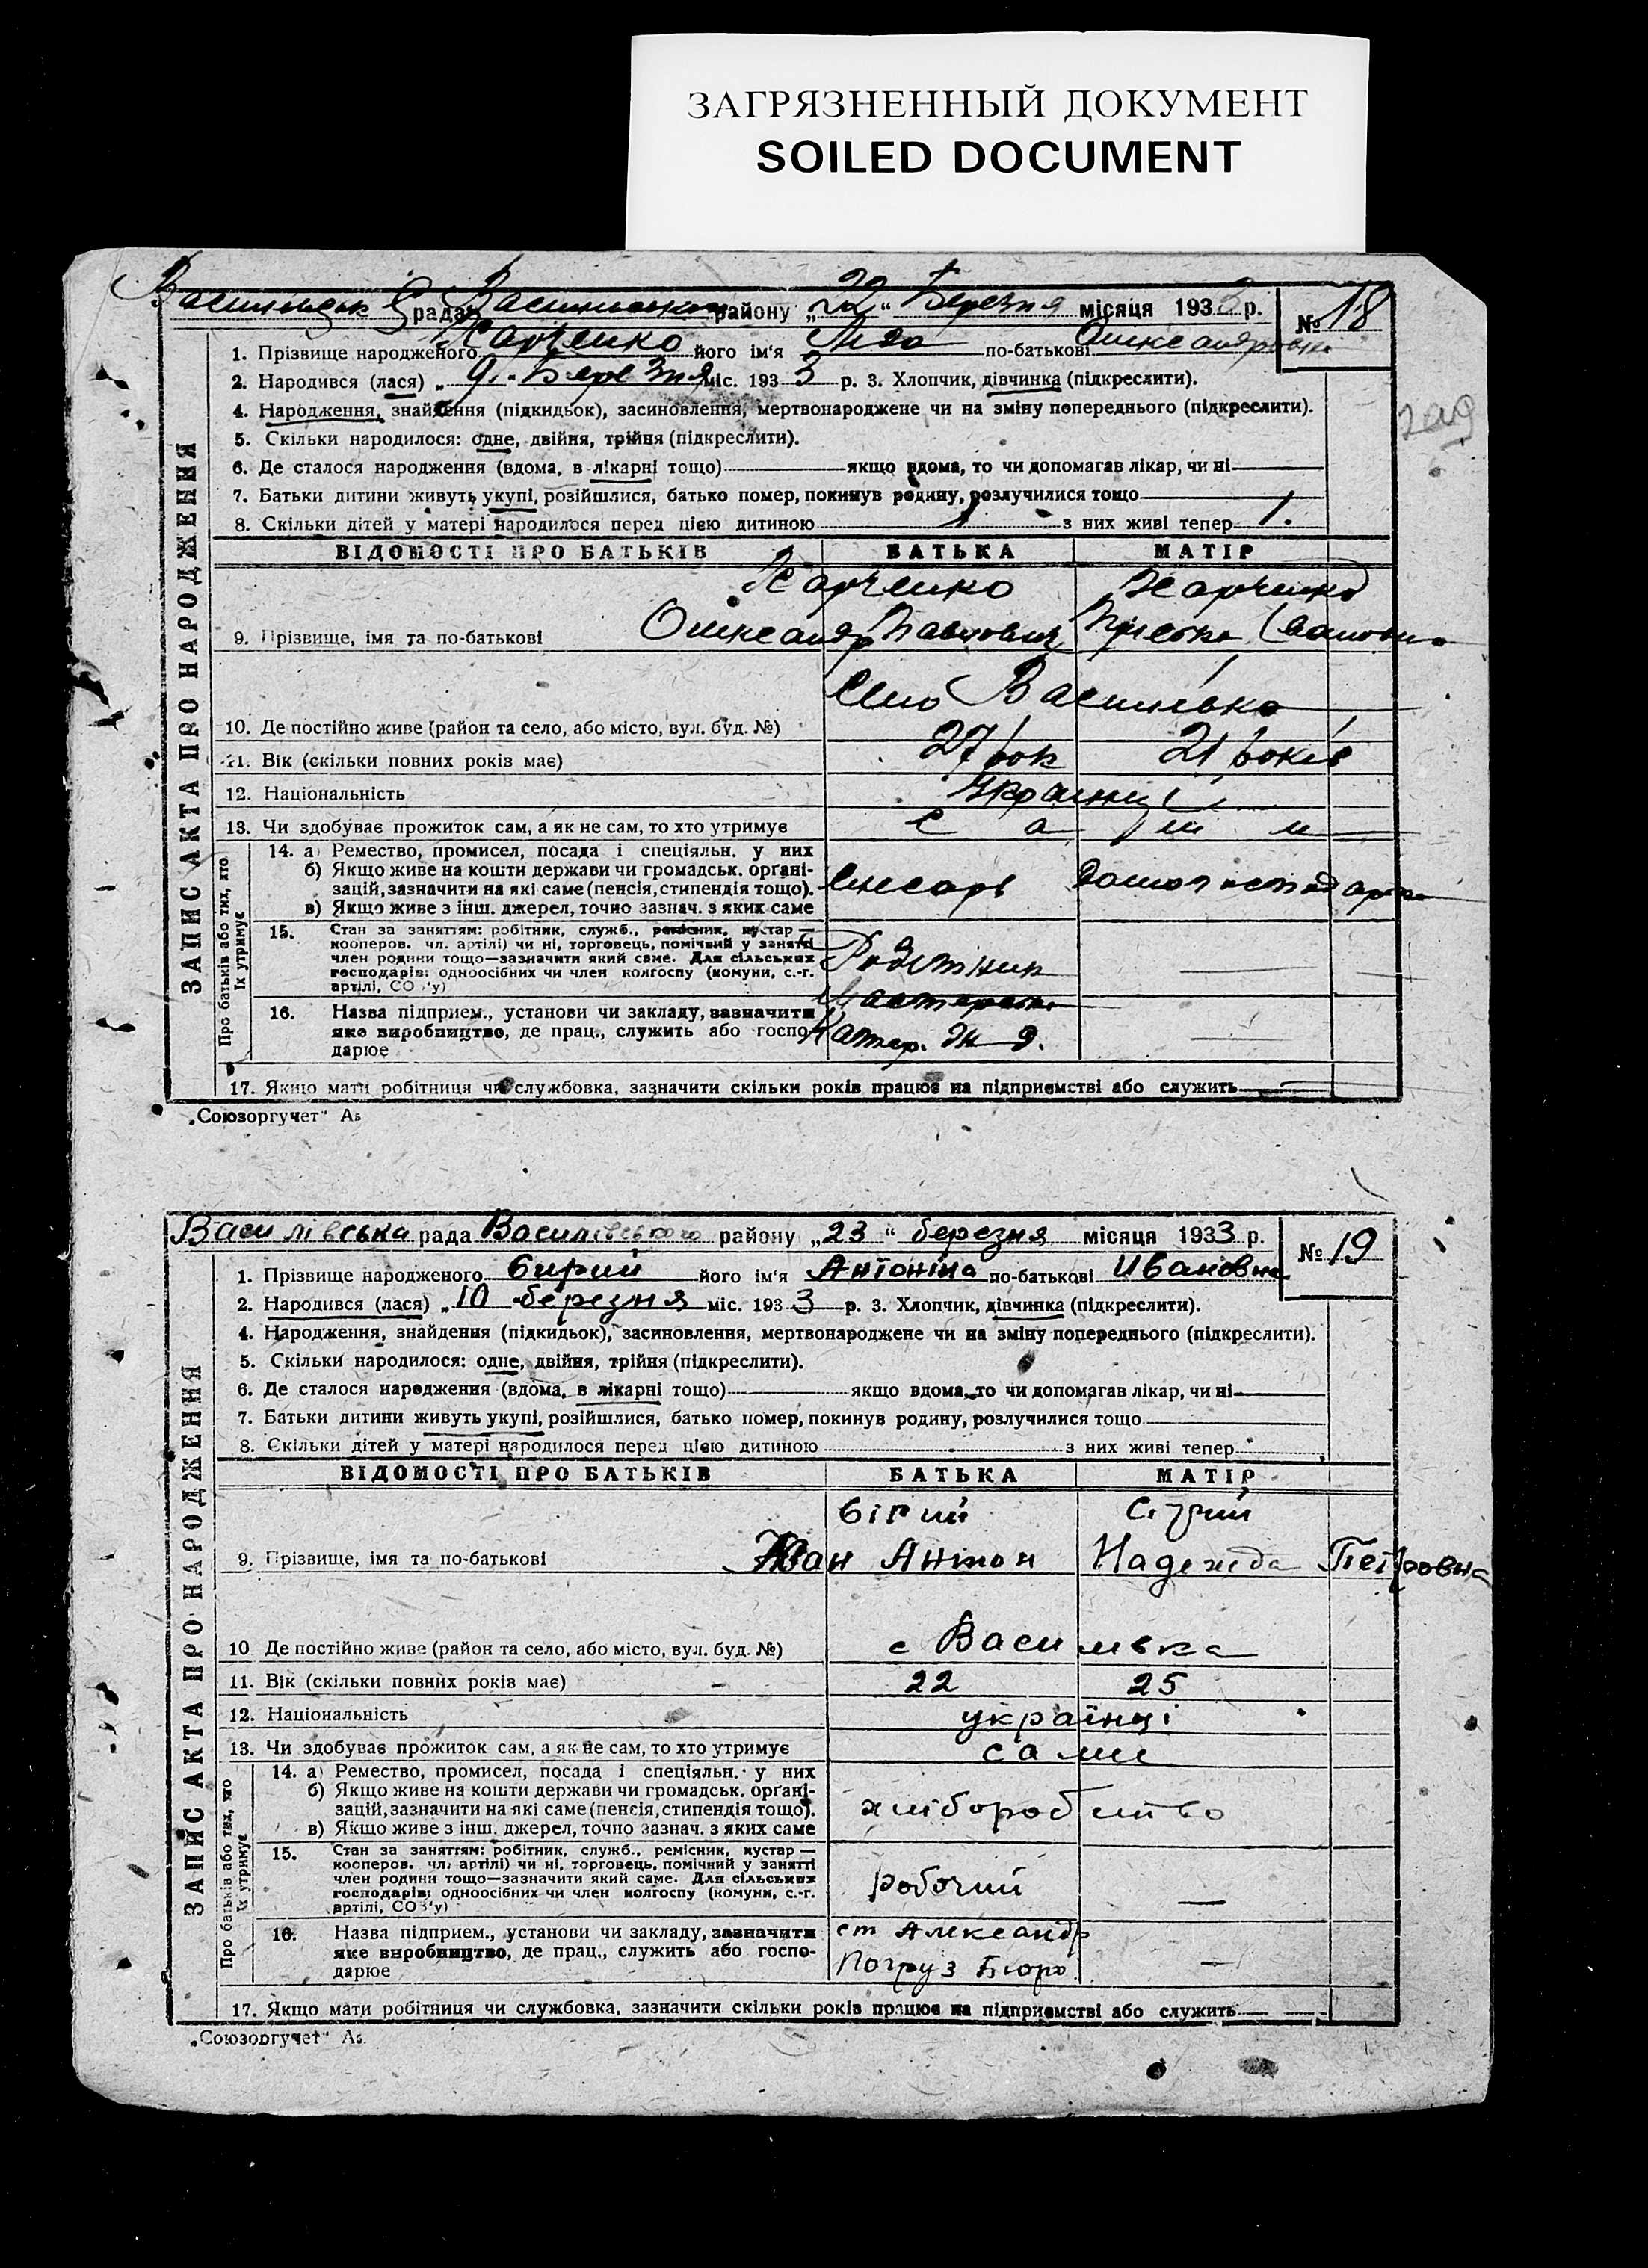 ЗАГРЯЗНЕННЫЙ ДОКУМЕНТ
SOILED DOCUMENT
рада району „22“ Березня місяця 1933 р. № 18
1. Прізвище народженого Харченко його ім'я по-батькові Олександровна
2. Народився (лася) „9“ Березня міс. 1933 р. 3. Хлопчик, дівчинка (підкреслити).
4. Народження, знайдення (підкидьок), засиновлення, мертвонароджене чи на зміну попереднього (підкреслити).
5. Скільки народилося: одне, двійня, трійня (підкреслити).
6. Де сталося народження (вдома, в лікарні тощо) якщо вдома, то чи допомагав лікар, чи ні
7. Батьки дитини живуть укупі, розійшлися, батько помер, покинув родину, розлучилися тощо
8. Скільки дітей у матері народилося перед цією дитиною 1 з них живі тепер 1.
ЗАПИС АКТА ПРО НАРОДЖЕННЯ
ВІДОМОСТІ ПРО БАТЬКІВ БАТЬКА МАТІР
Харченко Харченко
9. Прізвище, імя та по-батькові Олександр Павлович
10. Де постійно живе (район та село, або місто, вул. буд. №)
11. Вік (скільки повних років має) 27 рок 21 років
12. Національність Українці
13. Чи здобуває прожиток сам, а як не сам, то хто утримує сами
Про батьків або тих, хто їх утримує
14. а) Ремество, промисел, посада і спеціяльн. у них
б) Якщо живе на кошти держави чи громадськ. органі-
зацій, зазначити на які саме (пенсія, стипендія тощо). Слюсарь
в) Якщо живе з інш. джерел, точно зазнач. з яких саме
15. Стан за заняттям: робітник, служб., ремісник, кустар —
кооперов. чл. артілі) чи ні, торговець, помічний у занятті
член родини тощо—зазначити який саме. Для сільських
господарів: одноосібних чи член колгоспу (комуни, с.-г.
артілі, СОЗ'у) Робітник
16. Назва підприєм., установи чи закладу, зазначити
яке виробництво, де прац., служить або госпо-
дарює
17. Якщо мати робітниця чи службовка, зазначити скільки років працює на підприємстві або служить
„Союзоргучет“
Василівська рада Василівського району „23“ березня місяця 1933 р. № 19
1. Прізвище народженого його ім'я Антоніна по-батькові Ивановна
2. Народився (лася) „10 березня міс. 1933 р. 3. Хлопчик, дівчинка (підкреслити).
4. Народження, знайдення (підкидьок), засиновлення, мертвонароджене чи на зміну попереднього (підкреслити).
5. Скільки народилося: одне, двійня, трійня (підкреслити).
6. Де сталося народження (вдома, в лікарні тощо) якщо вдома, то чи допомагав лікар, чи ні
7. Батьки дитини живуть укупі, розійшлися, батько помер, покинув родину, розлучилися тощо
8. Скільки дітей у матері народилося перед цією дитиною з них живі тепер
ЗАПИС АКТА ПРО НАРОДЖЕННЯ
ВІДОМОСТІ ПРО БАТЬКІВ БАТЬКА МАТІР
9. Прізвище, імя та по-батькові Иван Антон Надежда Петровна
10 Де постійно живе (район та село, або місто, вул. буд. №) с Василивка
11. Вік (скільки повних років має) 22 25
12. Національність українці
13. Чи здобуває прожиток сам, а як не сам, то хто утримує сами
Про батьків або тих, хто їх утримує
14. а) Ремество, промисел, посада і спеціяльн. у них
б) Якщо живе на кошти держави чи громадськ. органі-
зацій, зазначити на які саме (пенсія, стипендія тощо). хліборобство
в) Якщо живе з інш. джерел, точно зазнач. з яких саме
15. Стан за заняттям: робітник, служб., ремісник, кустар —
кооперов. чл. артілі) чи ні, торговець, помічний у занятті
член родини тощо—зазначити який саме. Для сільських
господарів: одноосібних чи член колгоспу (комуни, с.-г.
артілі, СОЗ'у) робочий
16. Назва підприєм., установи чи закладу, зазначити ст Александр
яке виробництво, де прац., служить або госпо- Погруз Бюро
дарює
17. Якщо мати робітниця чи службовка, зазначити скільки років працює на підприємстві або служить
„Союзоргучет“